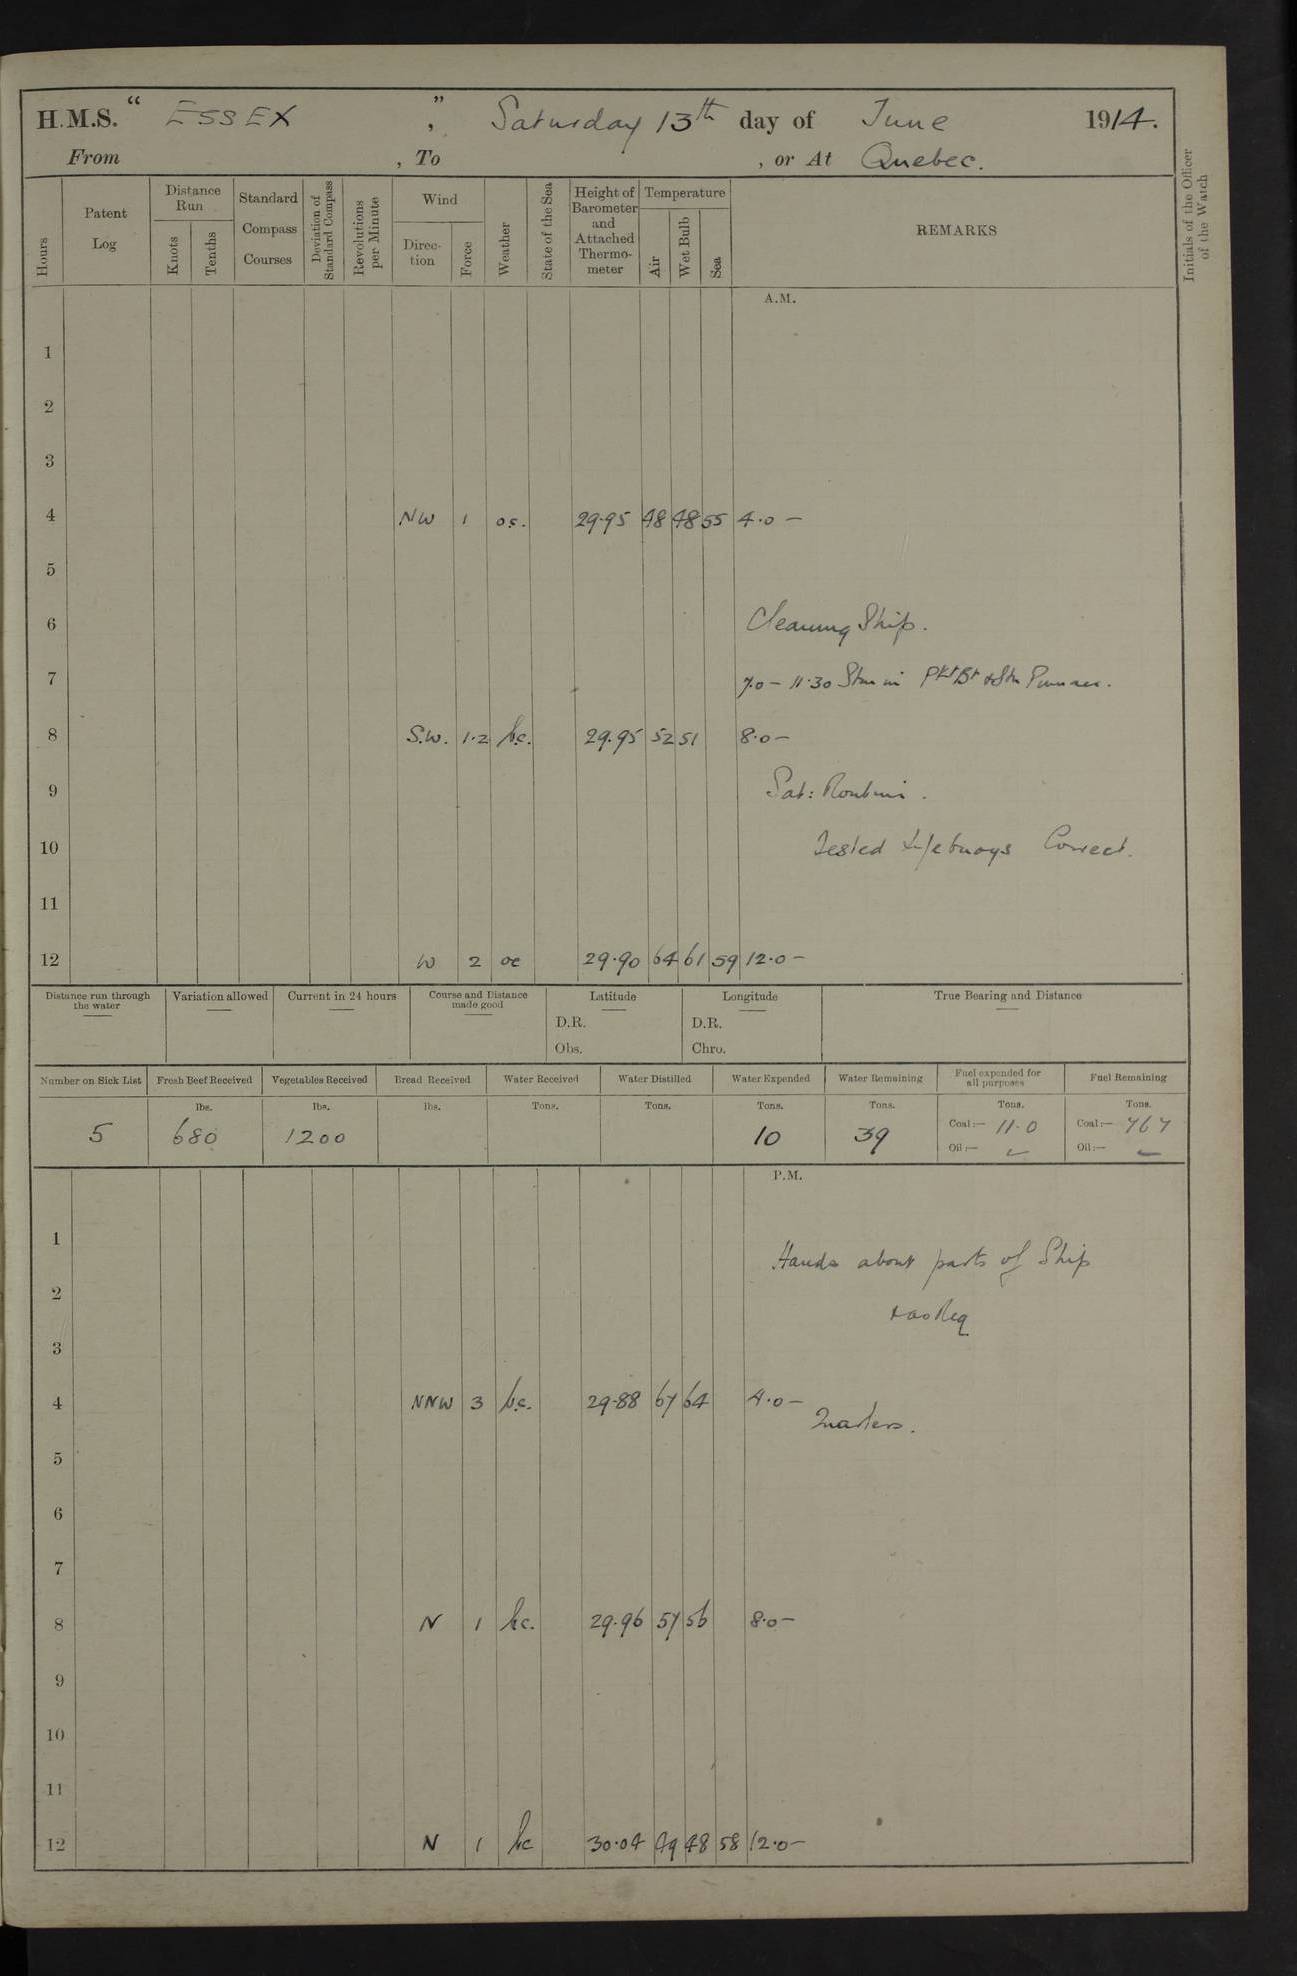 H.M.S. “ ESSEX ”, Saturday 13th day of June 1914.
From , To , or At Quebec.
Hours
Patent Log
Distance Run
Knots
Tenths
Standard Compass Courses
Deviation of Standard Compass
Revolutions per Minute
Wind
Direc-tion
Force
Weather
State of the Sea
Height of Barometer and Attached Thermo-meter
Temperature
Air
Wet Bulb
Sea
REMARKS
Initials of the Officer of the Watch
A.M.
1
2
3
4 NW 1 o.s. 29.95 48 48 55 4.0 —
5
6 Cleaning Ship.
7 7.0 — 11.30 Stm in Pkt Bt & Stm Pinnace.
8 S.W. 1.2 b.c. 29.95 52 51 8.0 —
9 Sat: Routine.
10 Tested Lifebuoys Correct.
11
12 W 2 oc 29.90 64 61 59 12.0 —
Distance run through the water
Variation allowed
Current in 24 hours
Course and Distance made good
Latitude
D.R.
Obs.
Longitude
D.R.
Chro.
True Bearing and Distance
Number on Sick List
5
Fresh Beef Received
lbs.
680
Vegetables Received
lbs.
1200
Bread Received
lbs.
Water Received
Tons.
Water Distilled
Tons.
Water Expended
Tons.
10
Water Remaining
Tons.
39
Fuel expended for all purposes
Tons.
Coal:— 11.0
Oil:—
Fuel Remaining
Tons.
Coal:— 767
Oil:— —
P.M.
1 Hands about parts of Ship
2 & as Req
3
4 NNW 3 b.c. 29.88 67 64 4.0 —
Quarters.
5
6
7
8 N 1 b.c. 29.96 57 56 8.0 —
9
10
11
12 N 1 bc 30.04 49 48 58 12.0 —